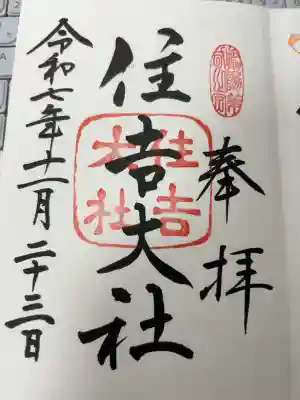 奉拝
住吉大社
住吉大社
令和七年十一月二十三日